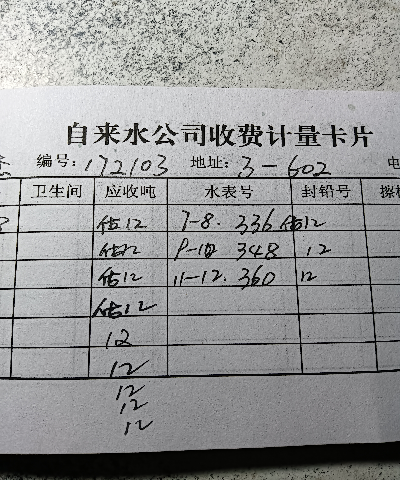 自来水公司收费计量卡片
编号: 172103 地址: 3-602 电
卫生间 应收吨 水表号 封铅号 擦
估12 7-8. 336 估12
估12 9-10 348 12
估12 11-12. 360 12
估12
12
12
12
12
12